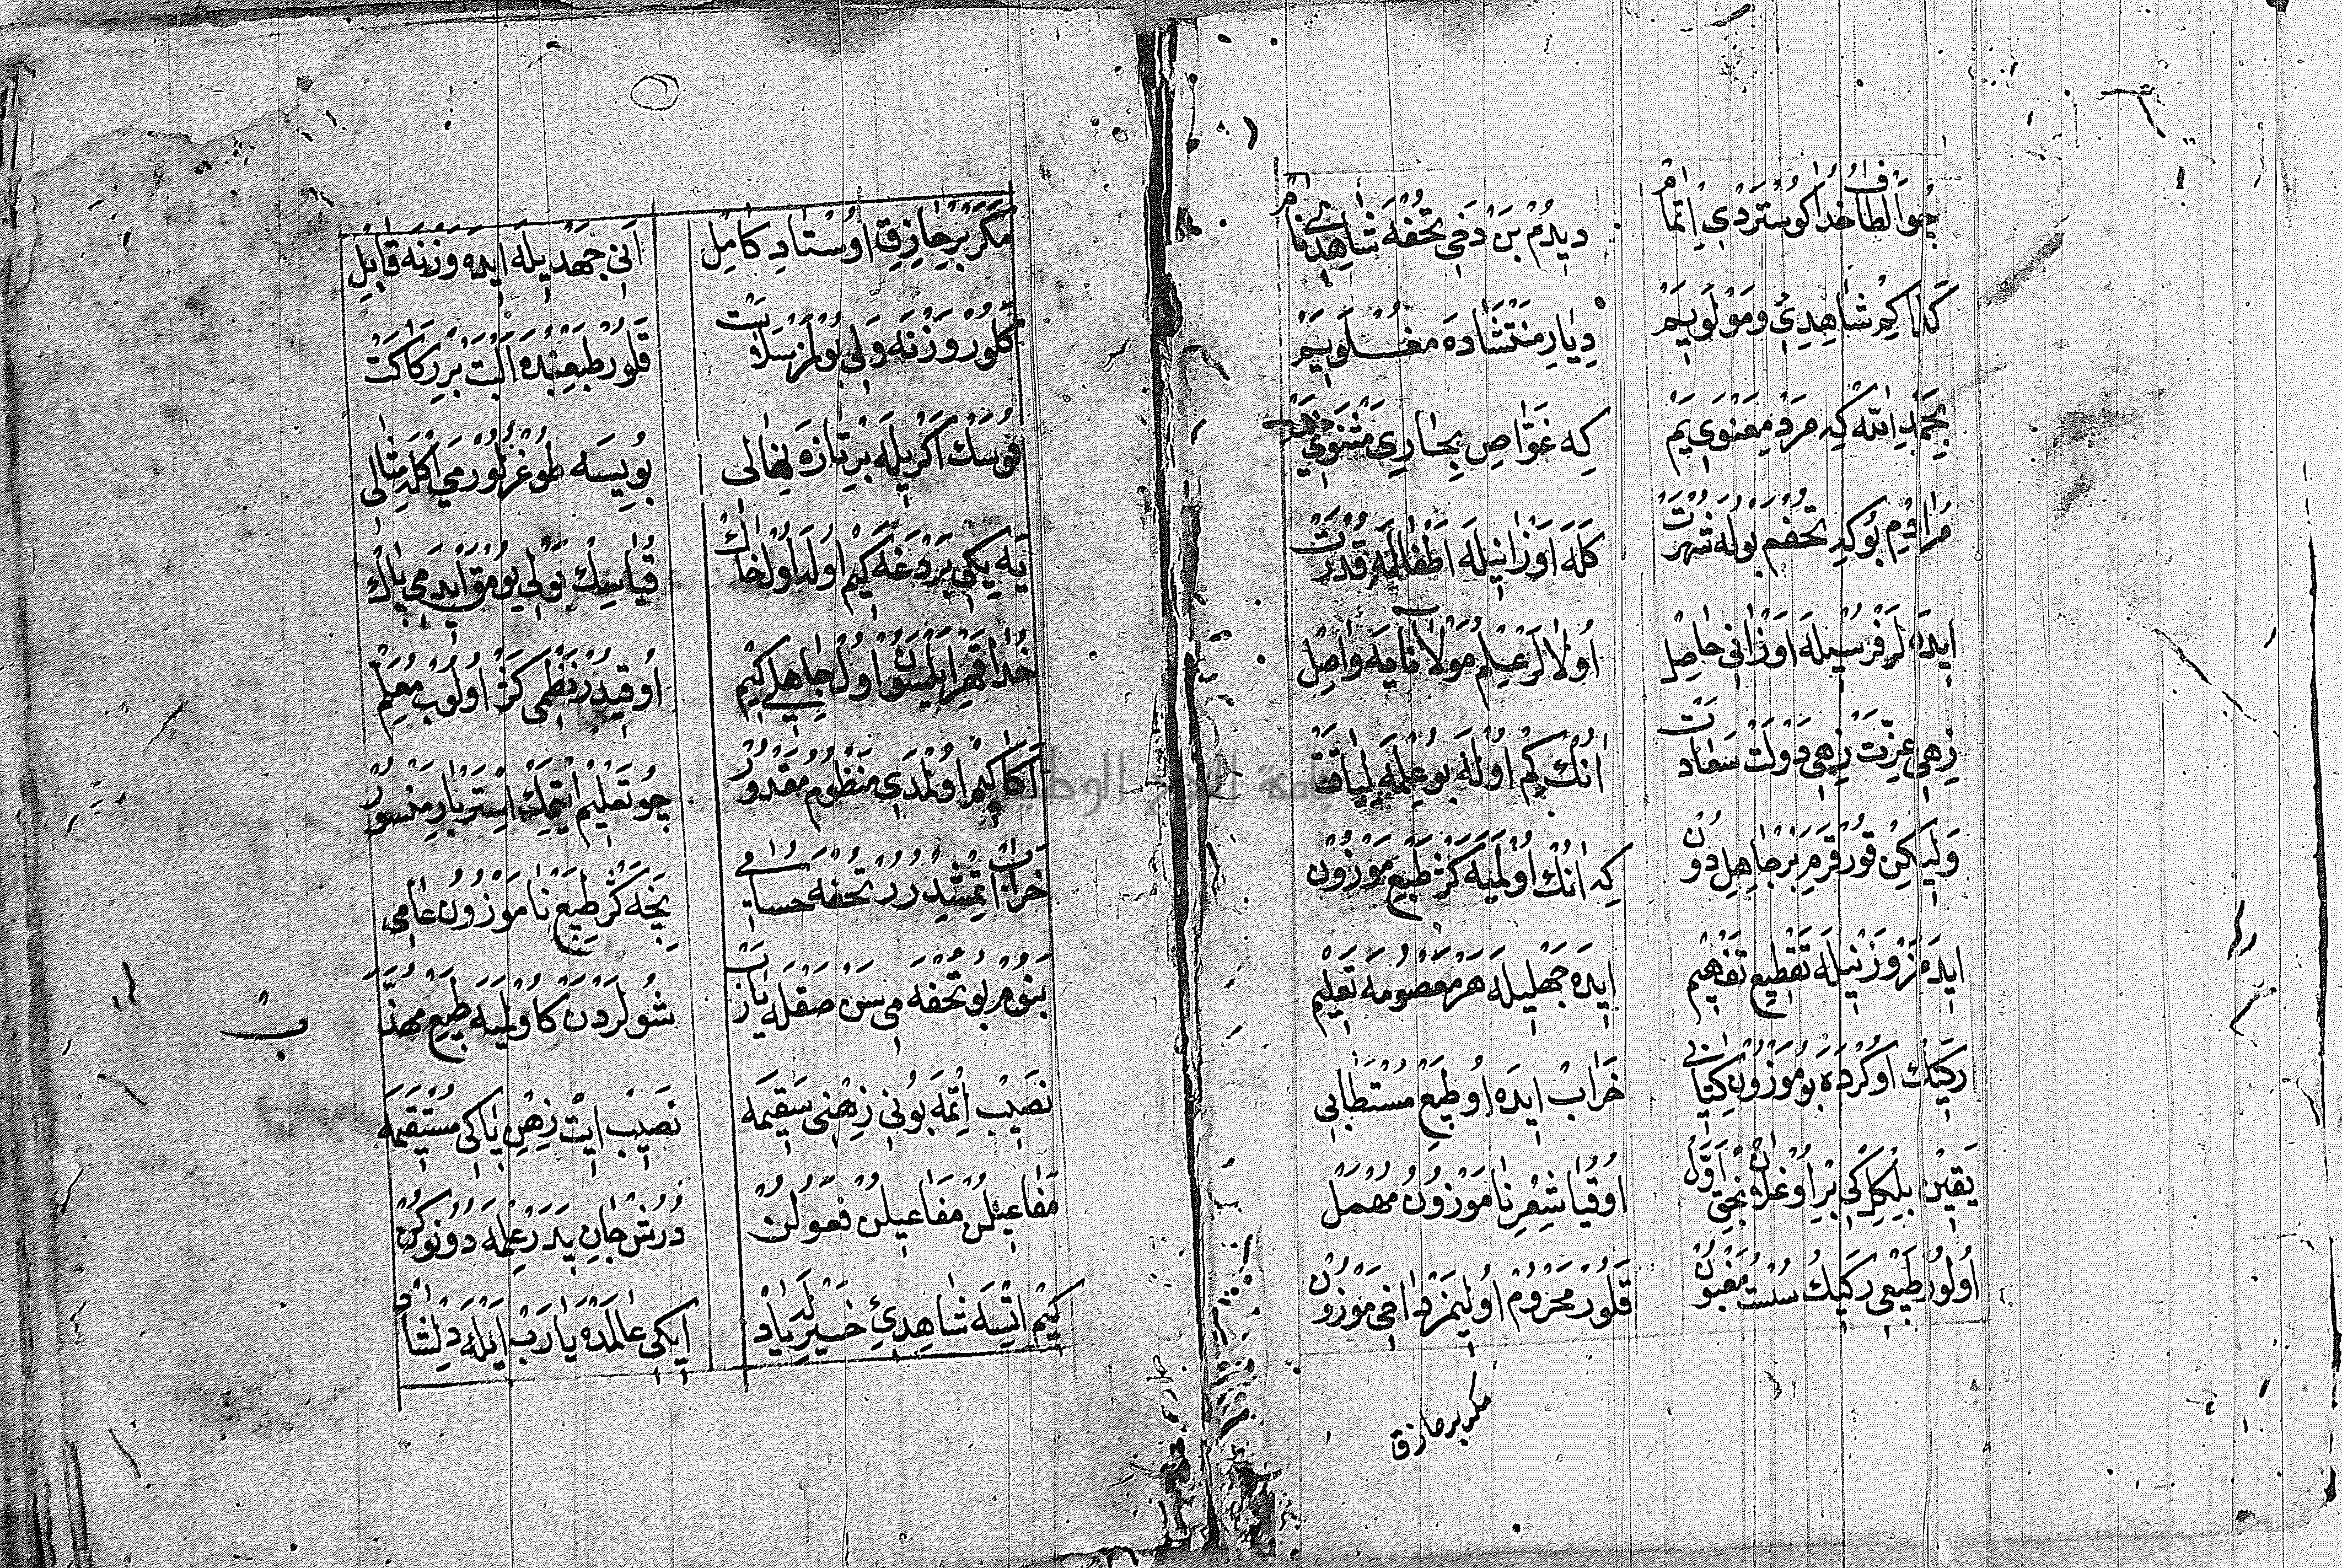 چو الطاف خدا كوستردی اتمام ديدم بن دخی تحفه شاهدی نام
كدا كم شاهدیٔ و مولويم ديار منتشاده مغلويم
بحمد الله كه مرد معنوی يم كه غواص بحار مثنوی يم
مرادم بو كه تحفم بوله شهرت كله اوزانيله اطفاله قدرت
ايده لر فرسيله اوزانی حاصل اولالر علم مولانايه واصل
زهی عزت زهی دولت سعادت انك كم اوله بو علمه لياقت
وليكن قورقرم بر جاهل دون كه انك اولميه كژ طبع موزون
ايده مز وزنيله تقطيع تفهيم ايده جهليله هر معصومه تعليم
ركيك اوكرده بو موزون كتابی خراب ايده او طبع مستطابی
يقين بيلكل كه بر اوغلان نجتی اول اوقيا شعر ناموزون مهمل
اولور طبعی ركيك سست مغبون قلور محروم اوليمز داخی موزون
مكر بر حازق
مكر بر حازق اوستاد كامل انی جهديله ايده وزنه قابل
كلور وزنه ولی بولمز سلاست قلور طبعنده البت بر ركاكت
قوسك اكر بيله بر تازه نهالی بويسه طوغرلورمی اكله مثالی
يه يكی بردغه كيم اوله اول خاك قياسك بولی يومق ايدرمی پاك
خدا قهر ايلسون اول جاهلی كيم اوقيدر نظمی كژ اولوب معلم
اكا كيم اولمدی منظوم مقدور چو تعليم ايتمك استر بار منثور
خراب ايتمشيدرر تحفه حسامی نجه كژ طبع ناموزون عامی
بنوم بو تحفه می سن صقله يا رب شولردن كا اولميه طبع مهذب
نصيب اتمه بونی ذهنی سقيمه نصيب ايت ذهن پاكی مستقيمه
مفاعيلن مفاعيلن فعولن درش جان پدر علمه دون و كون
كيم اتسه شاهدیٔ خيرله ياد ايكی عالمده يا رب ايله دلشاد